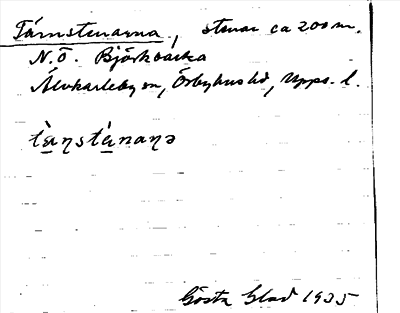 Tärnstenarna, stenar ca 200 m.
N.Ö. Björkbacka
Älvkarleby sn, Örbyhus hd, Upps. l.
tànstὰnanə
Gösta Glad 1935